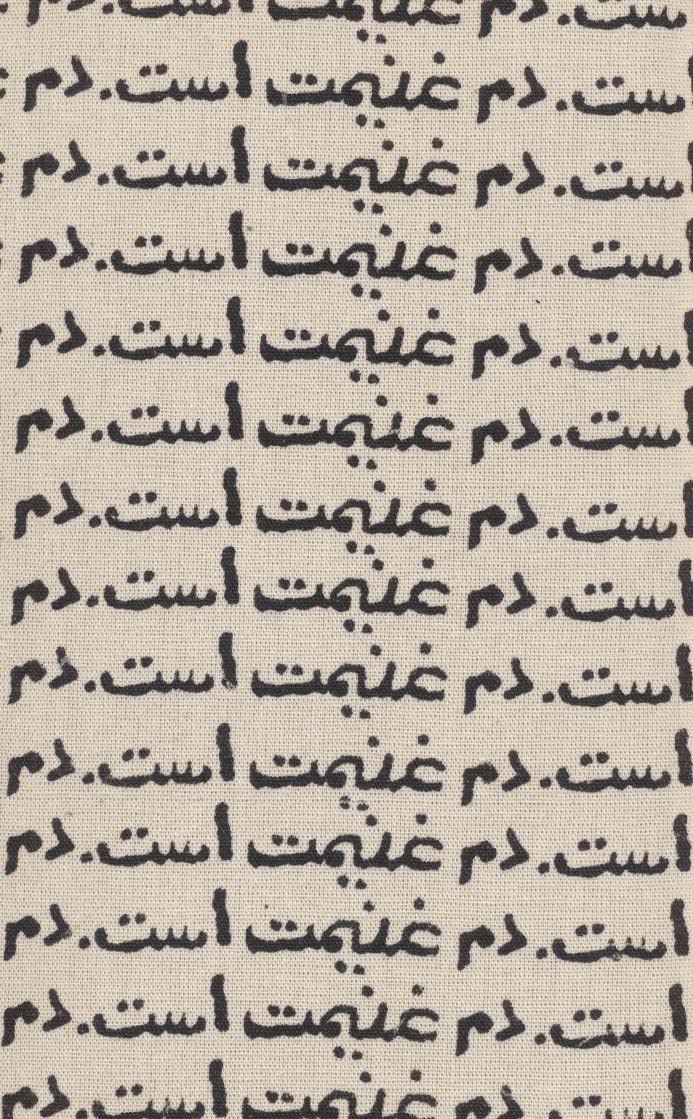 است.دم غنیمت است.دم
است.دم غنیمت است.دم
است.دم غنیمت است.دم
است.دم غنیمت است.دم
است.دم غنیمت است.دم
است.دم غنیمت است.دم
است.دم غنیمت است.دم
است.دم غنیمت است.دم
است.دم غنیمت است.دم
است.دم غنیمت است.دم
است.دم غنیمت است.دم
است.دم غنیمت است.دم
است.دم غنیمت است.دم
است.دم غنیمت است.دم